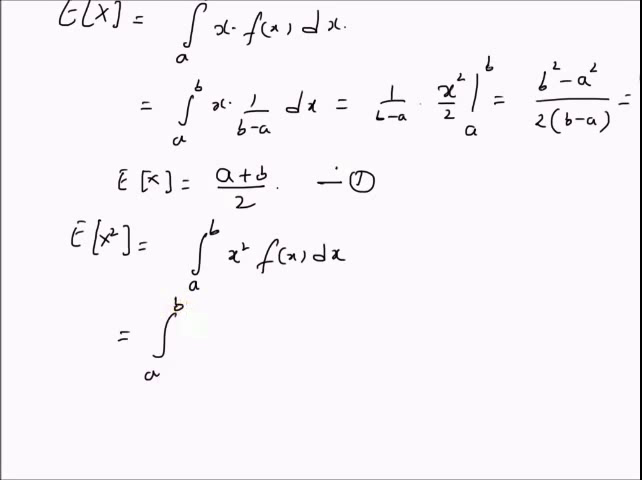 E[X] = ∫ₐ x. f(x) dx.
= ∫ₐᵇ x. 1/(b-a) dx = 1/(b-a) · x²/2 |ₐᵇ = (b²-a²)/(2(b-a)) =
E[X] = (a+b)/2. — ①
E[X²] = ∫ₐᵇ x² f(x) dx
= ∫ₐᵇ